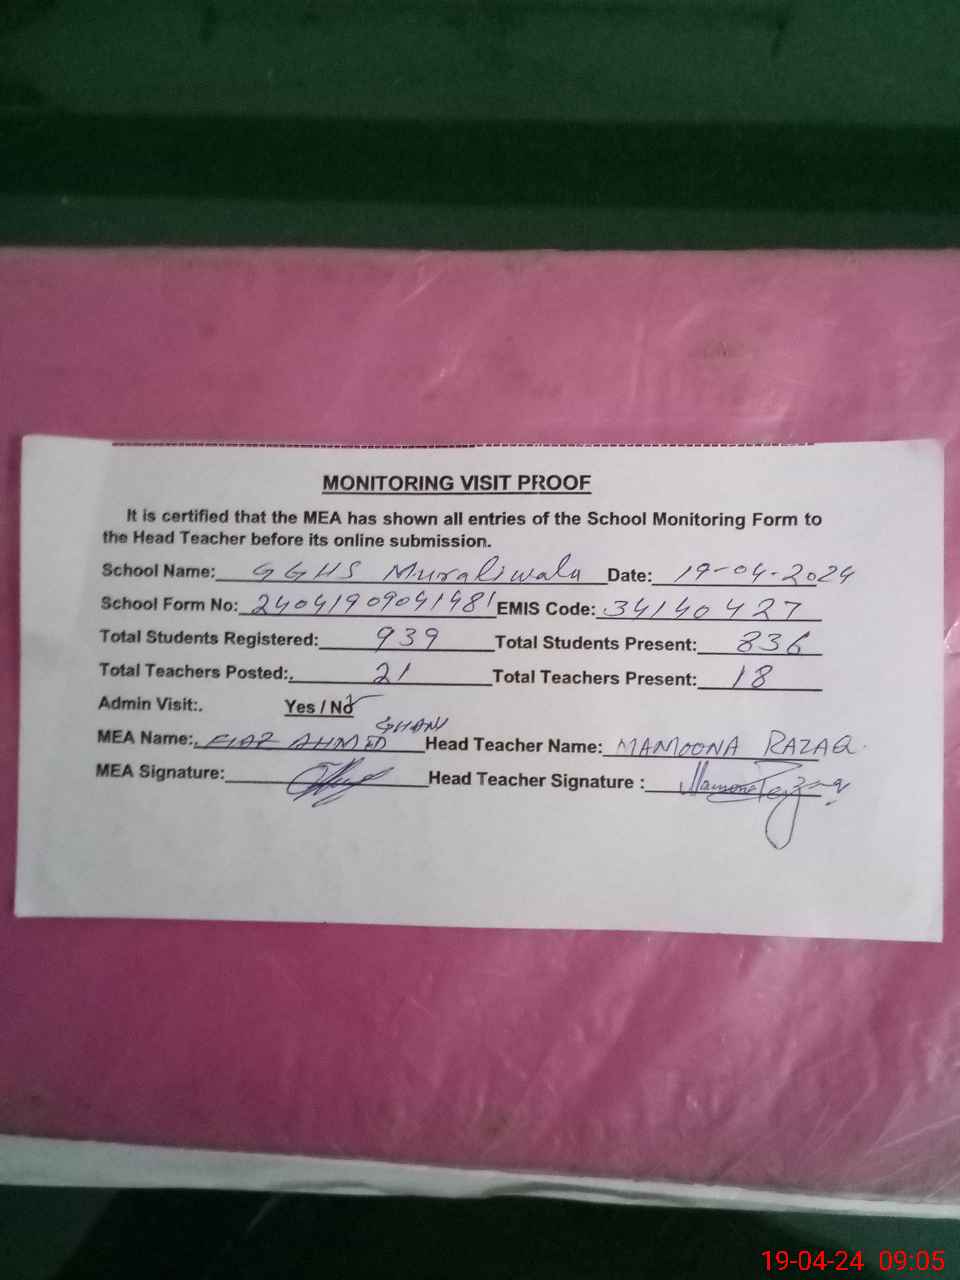 MONITORING VISIT PROOF
It is certified that the MEA has shown all entries of the School Monitoring Form to
the Head Teacher before its online submission.
School Name: GGHS Muraliwala Date: 19-04-2024
School Form No: 24041909041481 EMIS Code: 34140427
Total Students Registered: 939 Total Students Present: 836
Total Teachers Posted:. 21 Total Teachers Present: 18
Admin Visit:. Yes / No
GHANI
MEA Name:. FIAZ AHMED Head Teacher Name: MAMOONA RAZAQ.
MEA Signature: Head Teacher Signature :
19-04-24 09:05